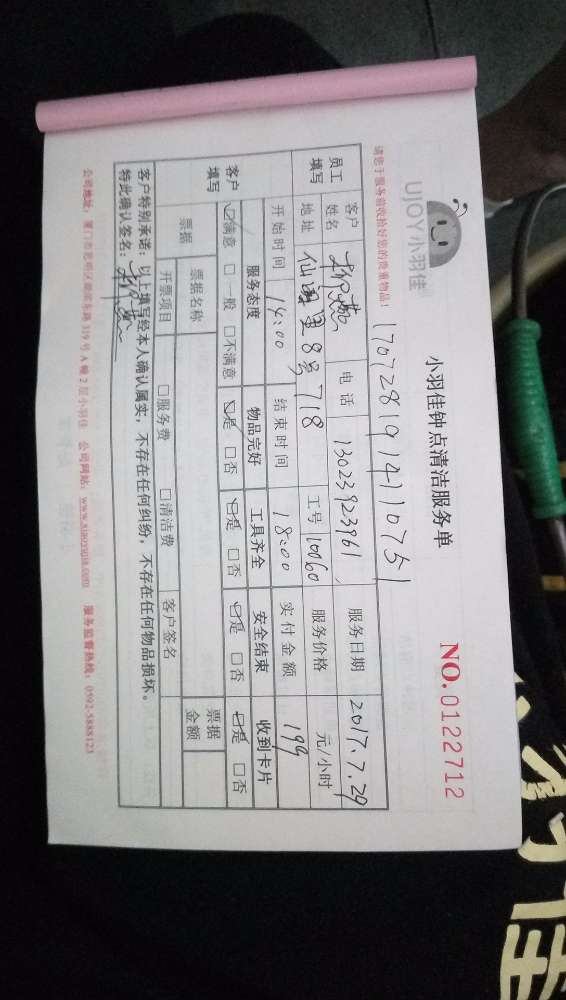 UJOY小羽佳
小羽佳钟点清洁服务单
NO.0122712
请您于服务前收拾好您的贵重物品!
17072819142110751
员工填写
客户姓名 电话 13023923961 服务日期 2017.7.29
地址 仙阁里8号718 工号 10060 服务价格 元/小时
开始时间 14:00 结束时间 18:00 实付金额 199
客户填写
服务态度 物品完好 工具齐全 安全结束 收到卡片
☑满意 □一般 □不满意 ☑是 □否 ☑是 □否 ☑是 □否 ☑是 □否
票据 票据名称 票据金额
开票项目 □服务费 □清洁费 客户签名
客户特别承诺:以上填写经本人确认属实,不存在任何纠纷,不存在任何物品损坏。
特此确认签名:
公司地址:厦门市思明区湖滨东路319号A幢2层小羽佳 公司网站:www.xiaoyujia.com 服务监督热线:0592-5888123